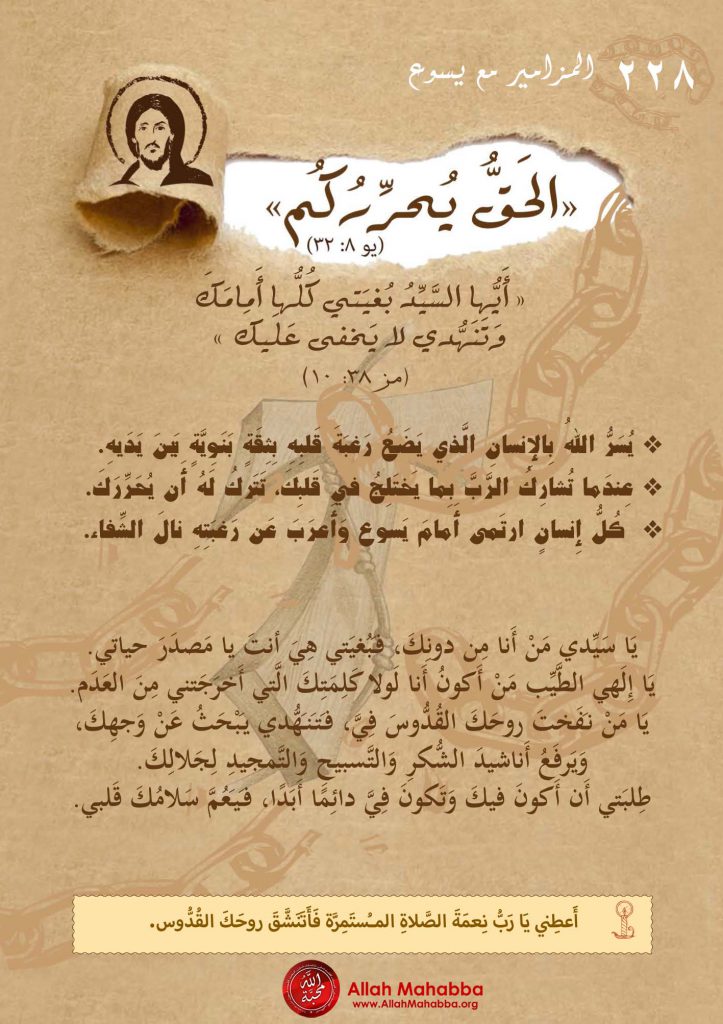 ٢٢٨ المزامير مع يسوع
«الحَقُّ يُحرِّرُكُم»
(يو ٨: ٣٢)
« أَيُّها السَّيِّدُ بُغيَتي كُلُّها أَمامَكَ
وَتَنَهُّدي لا يَخفى عَليكَ »
(مز ٣٨: ١٠)
❖ يُسَرُّ اللهُ بِالإنسانِ الَّذي يَضَعُ رَغبَةَ قَلبِهِ بِثِقَةٍ بَنَوِيَّةٍ بَينَ يَدَيهِ.
❖ عِندَما تُشارِكُ الرَّبَّ بِما يَختَلِجُ في قَلبِكَ، تَترُكُ لَهُ أَن يُحَرِّرَكَ.
❖ كُلُّ إِنسانٍ ارتَمى أَمامَ يَسوع وَأَعرَبَ عَن رَغبَتِهِ نالَ الشِّفاء.
يَا سَيِّدي مَنْ أَنا مِن دونِكَ، فَبُغيَتي هِيَ أَنتَ يا مَصدَرَ حياتي.
يَا إِلَهي الطَّيِّب مَنْ أَكونُ أَنا لَولا كَلِمَتِكَ الَّتي أَخرَجَتني مِنَ العَدَم.
يَا مَنْ نَفَختَ روحَكَ القُدُّوسَ فِيَّ، فَتَنَهُّدي يَبْحَثُ عَنْ وَجهِكَ،
وَيَرفَعُ أَناشيدَ الشُّكرِ وَالتَّسبيحِ وَالتَّمجيدِ لِجَلالِكَ.
طِلبَتي أَن أَكونَ فيكَ وَتَكونَ فِيَّ دائِمًا أَبَدًا، فَيَعُمَّ سَلامُكَ قَلبي.
أَعطِني يَا رَبُّ نِعمَةَ الصَّلاةِ المـُستَمِرَّة فَأَتَنَشَّقَ روحَكَ القُدُّوس.
الله محبة
Allah Mahabba
www.AllahMahabba.org